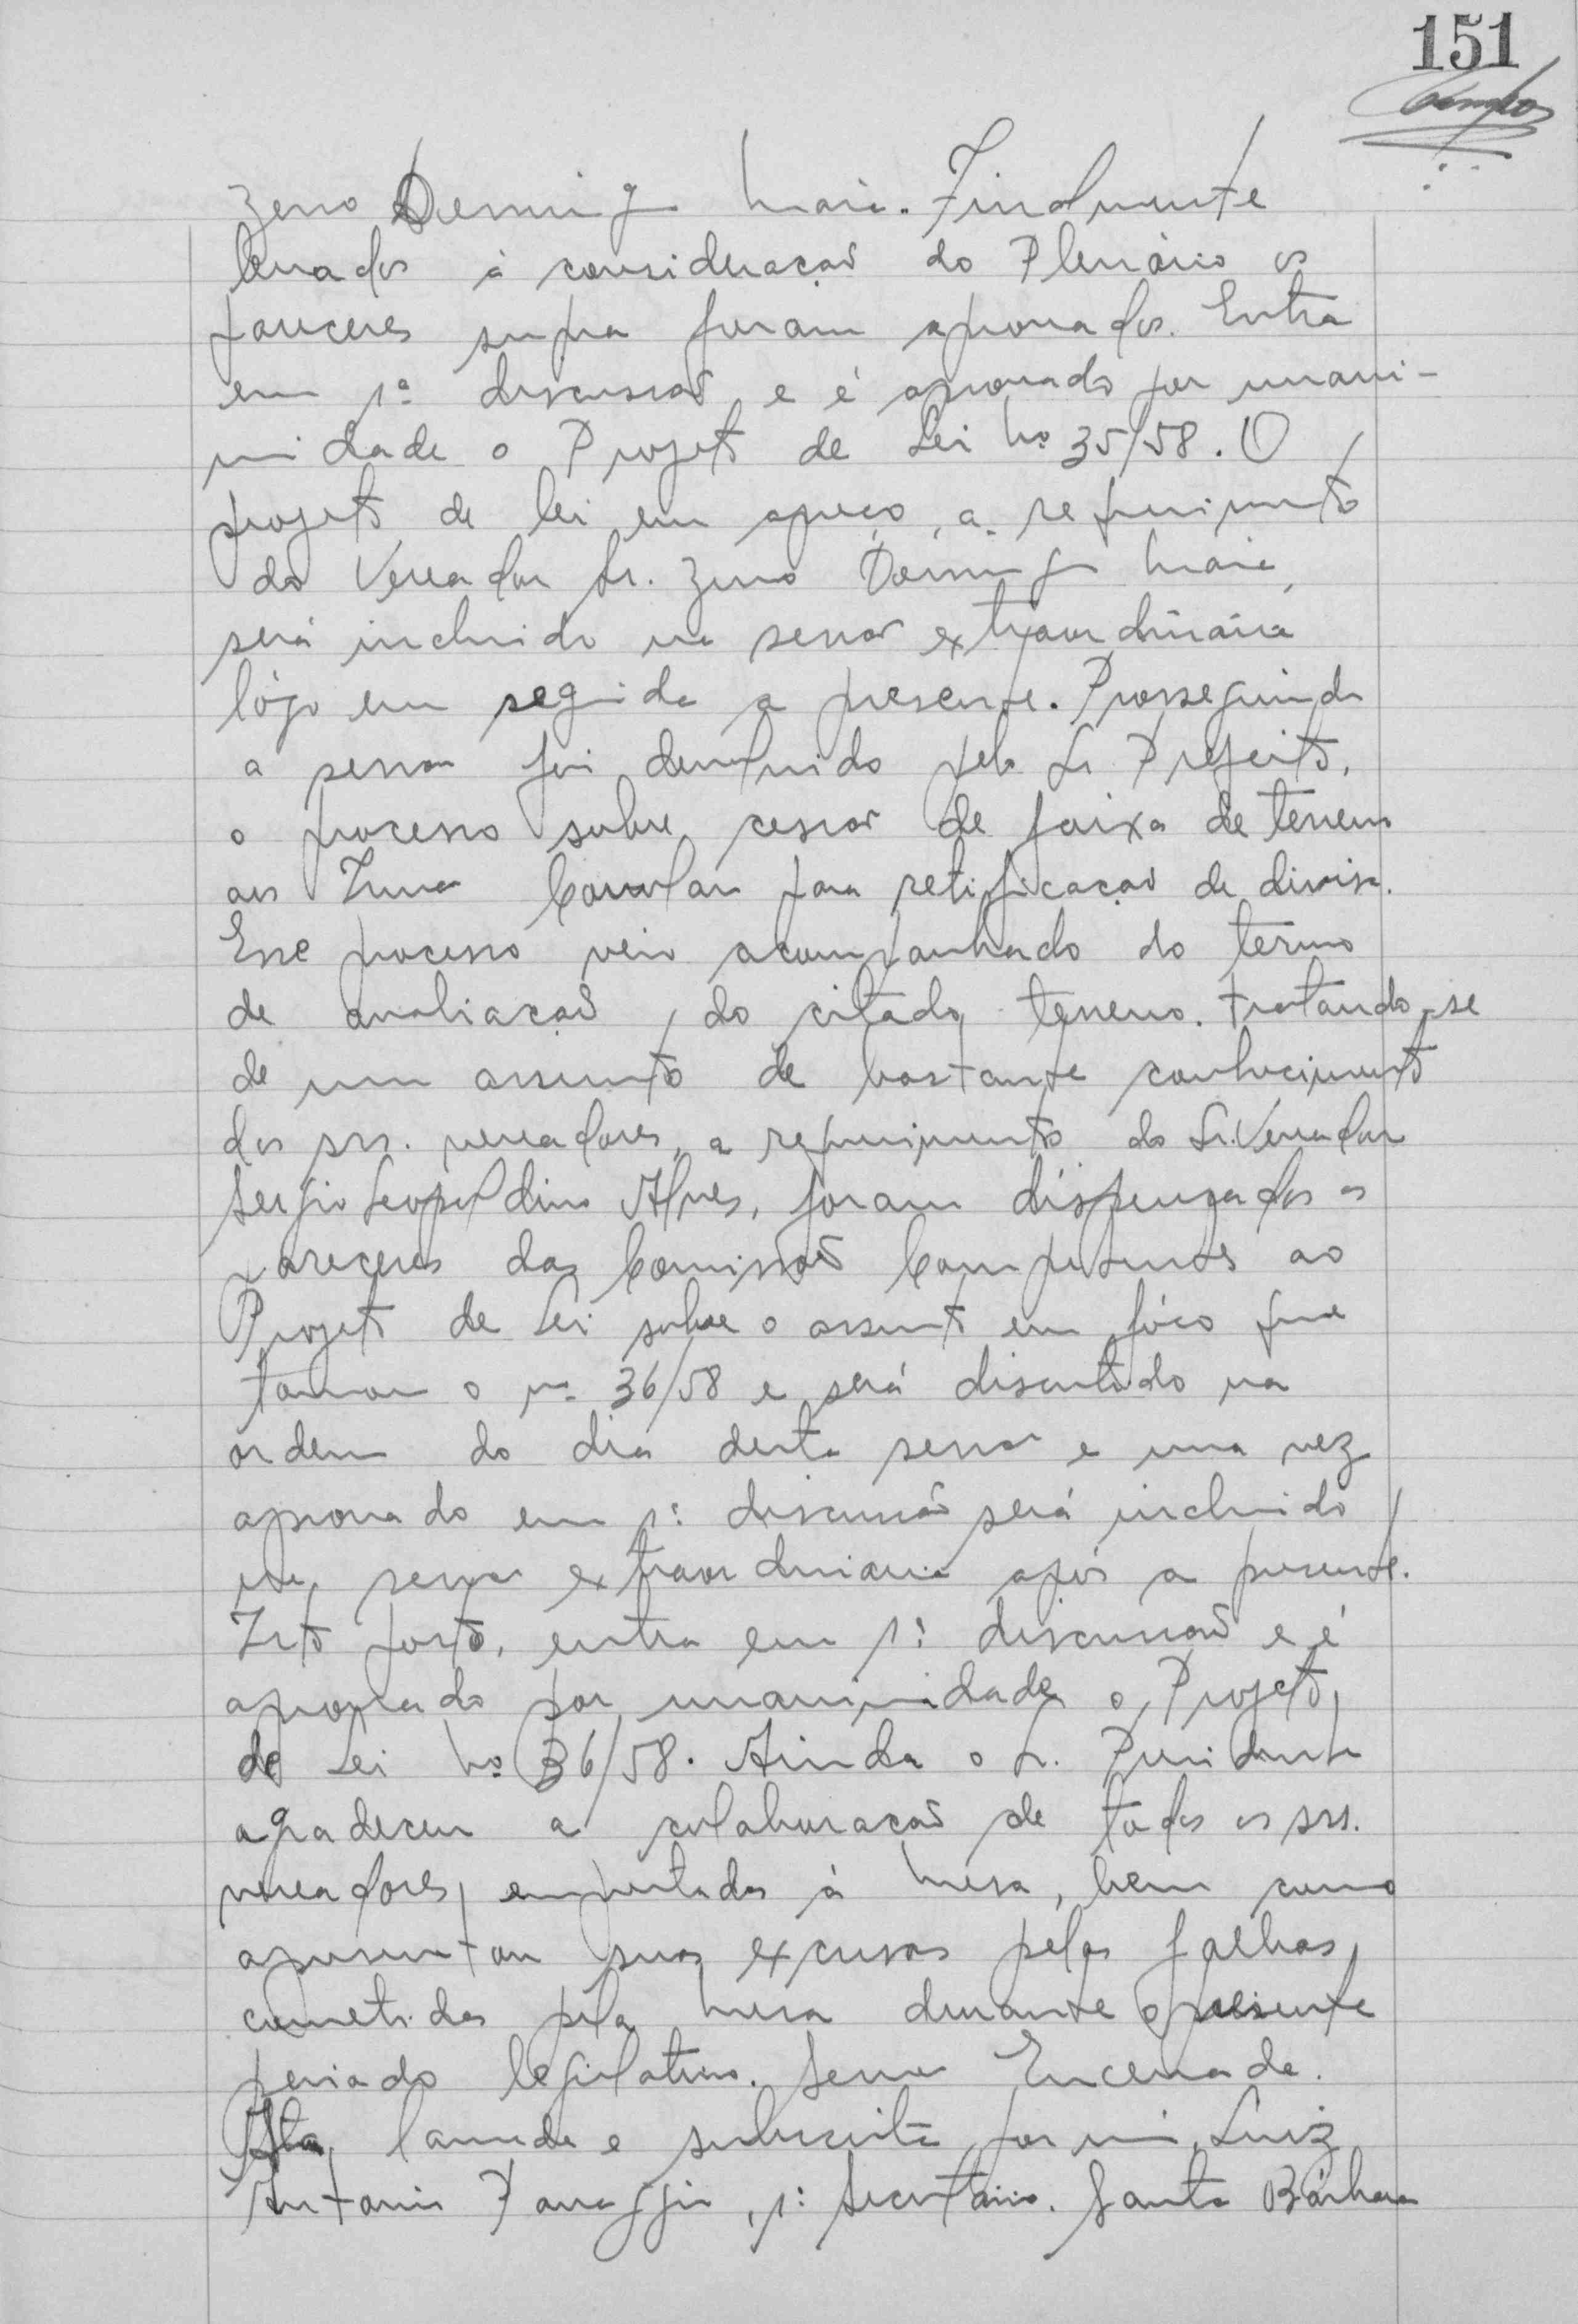 151
Campos
Zeno Doming Maia. Finalmente
levados à consideração do Plenário os
pareceres supra foram aprovados. Entra
em 1ª discussão e é aprovado por unani-
midade o Projeto de Lei nº 35/58. O
projeto de lei em apreço, a requerimento
do Vereador Sr. Zeno Doming Maia,
será incluido na sessão extraordinária
lógo em seguida a presente. Prosseguindo
a sessão foi devolvido pelo Sr Prefeito,
o processo sobre cessão de faixa de terreno
aos para retificação de divisa.
Esse processo veio acompanhado do termo
de avaliação, do citado terreno. Tratando-se
de um assunto de bastante conhecimento
dos srs. vereadores, a requerimento do Sr. Vereador
Sergio Leopoldino Alves, foram dispensados os
pareceres das Comissões Competentes ao
Projeto de Lei sobre o assunto em fóco que
tomou o nº 36/58 e será discutido na
ordem do dia desta sessão e uma vez
aprovado em 1ª discussão será incluido
na sessão extraordinaria após a presente.
Isto posto, entra em 1ª discussão e é
aprovado por unanimidade o Projeto
de Lei nº 36/58. Ainda o Sr. Presidente
agradeceu a colaboração de todos os srs.
vereadores, emprestada à Mesa, bem como
apresentou suas excusas pelas falhas
cometidas pela Mesa durante o presente
periodo legislativo. Sessão Encerrada.
Ata lavrada e subscrita por mim, Luiz
Antonio Panaggio, 1º Secretário. Santa Bárbara